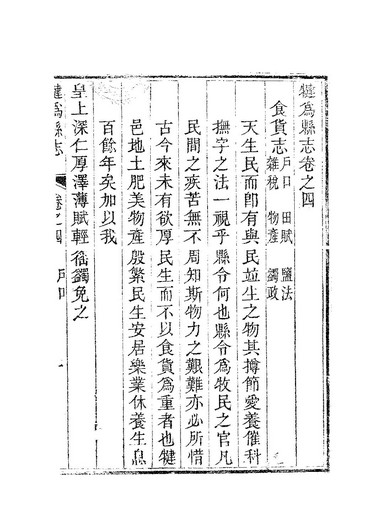 犍爲縣志卷之四
食貨志 戶口 田賦 鹽法
雜稅 物產 蠲政
天生民而卽有與民並生之物其撙節愛養催科
撫字之法一視乎縣令何也縣令爲牧民之官凡
民間之疾苦無不周知斯物力之艱難亦必所惜
古今來未有欲厚民生而不以食貨爲重者也犍
邑地土肥美物產殷繁民生安居樂業休養生息
百餘年矣加以我
皇上深仁厚澤薄賦輕徭蠲免之
犍爲縣志 卷之四 戶口